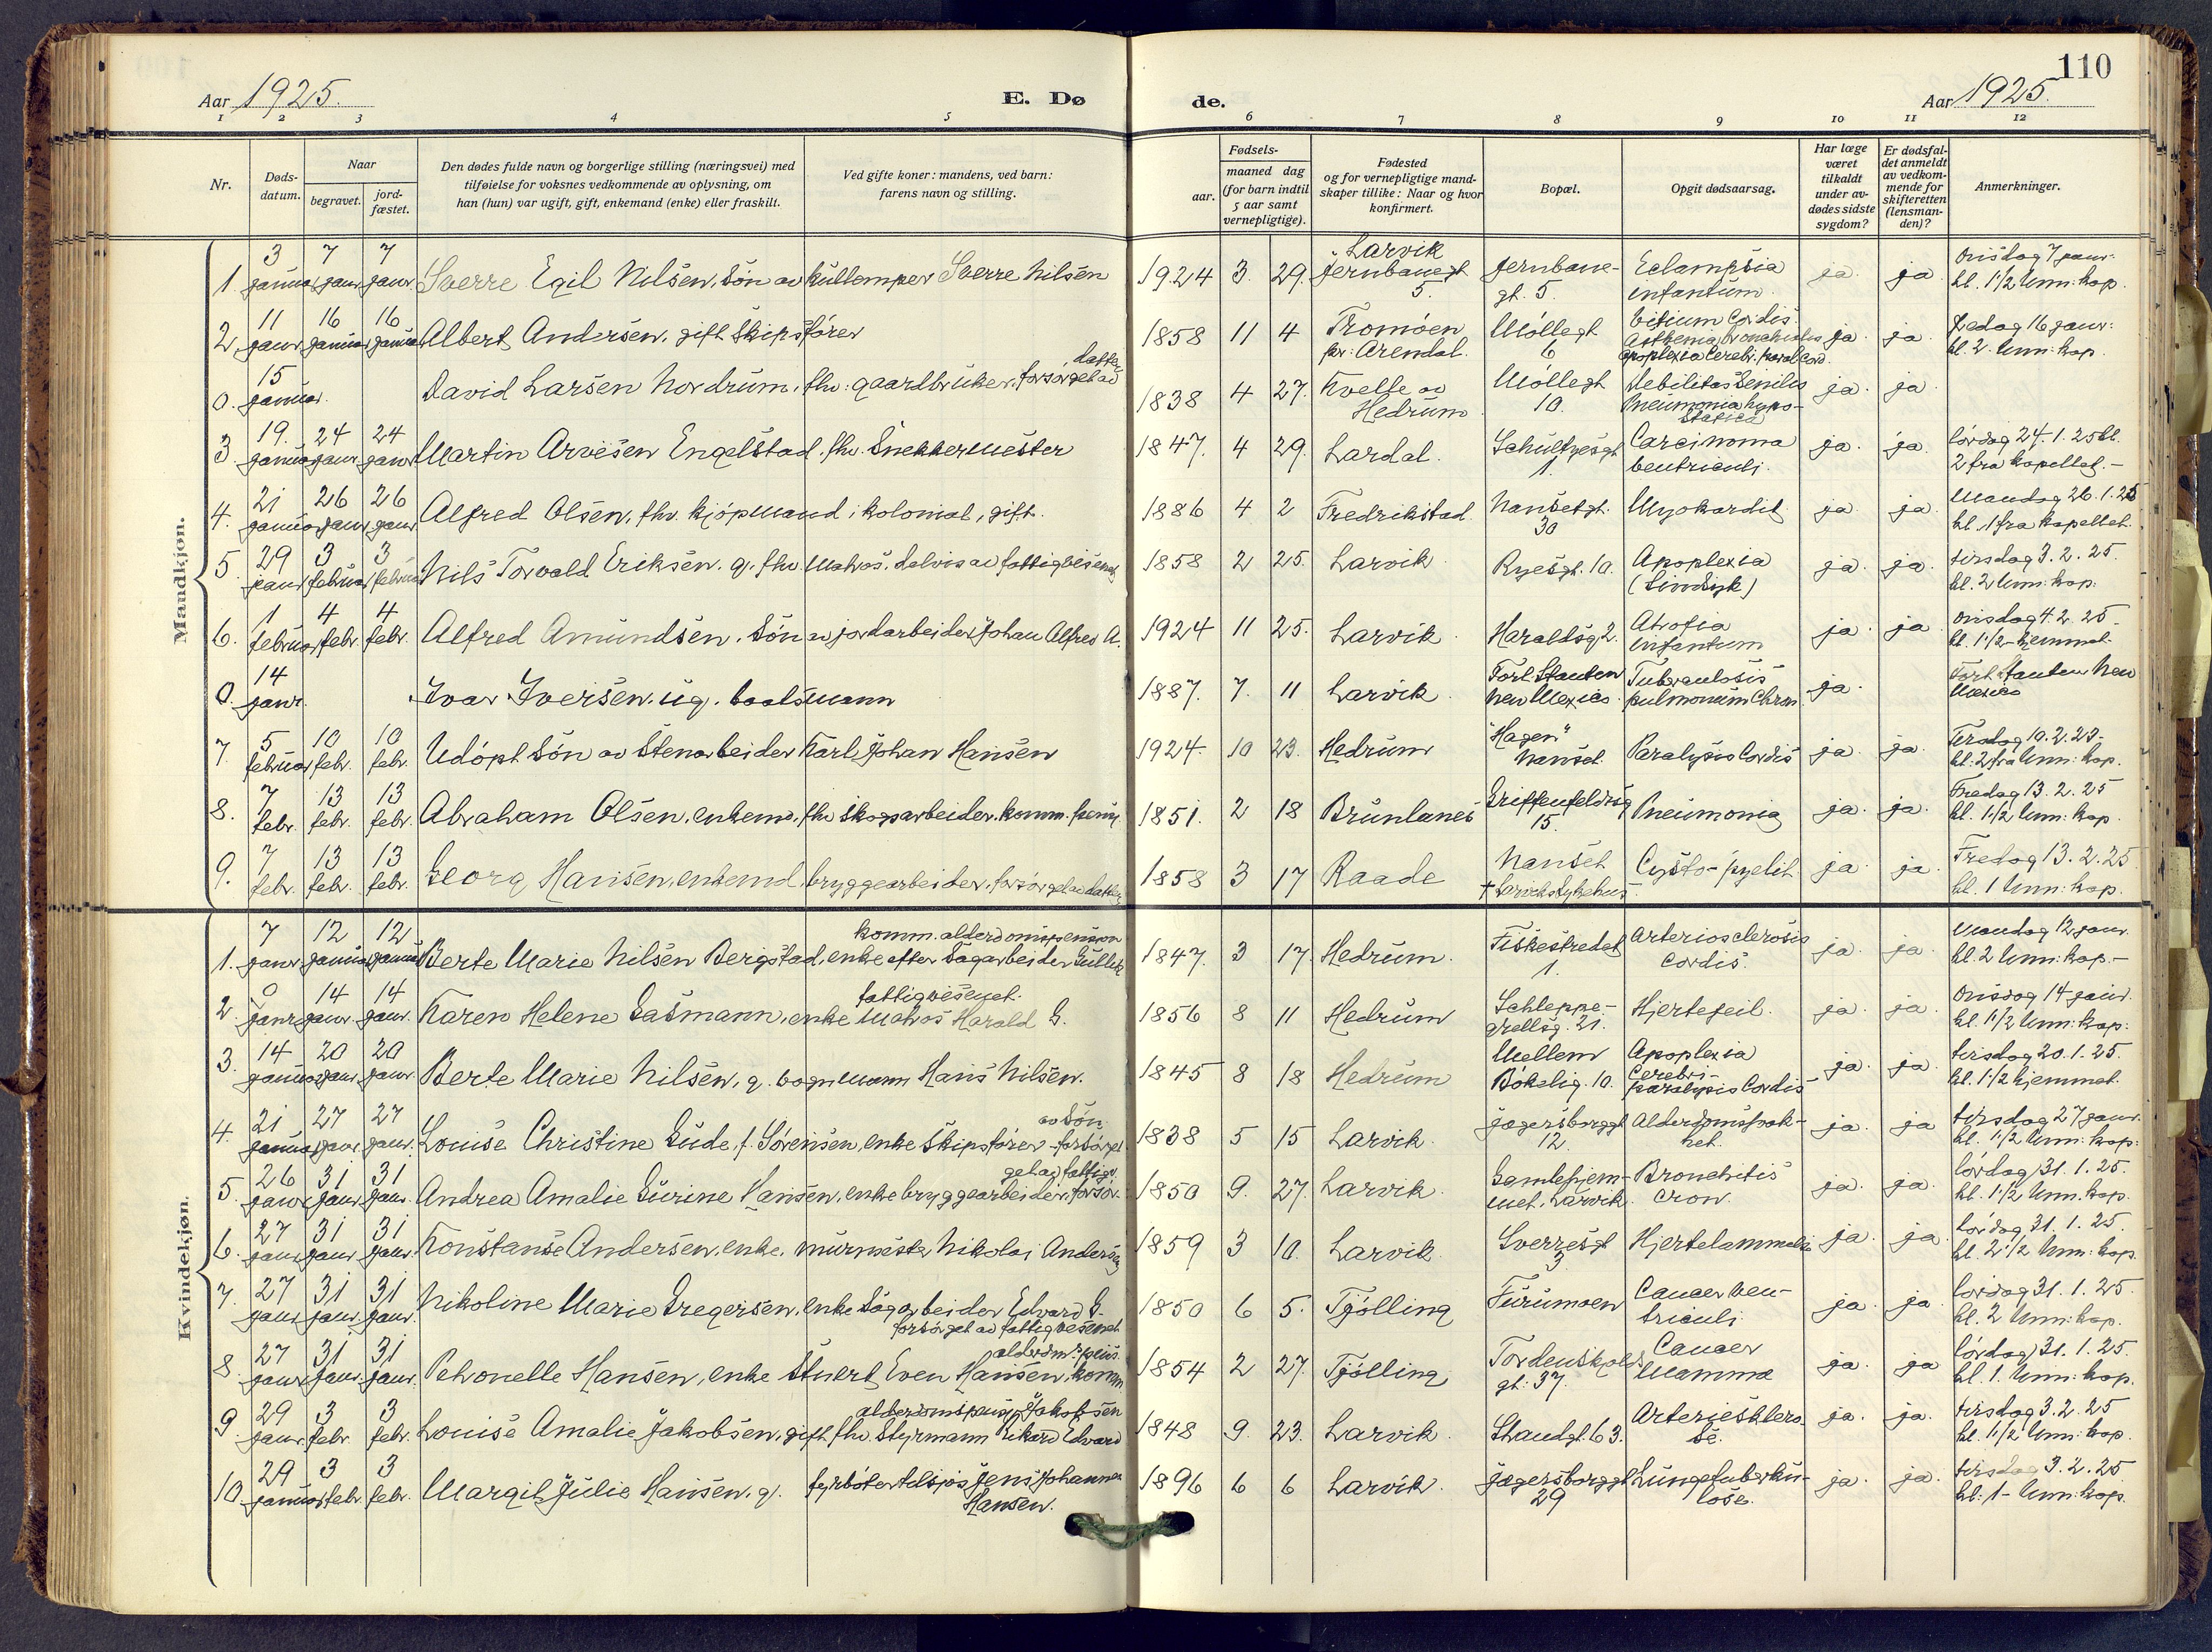 110
Aar 1925.
E. Dø
de.
Aar 1925.
1 2 3 4 5 6 7 8 9 10 11 12
Nr.
Døds-
datum.
Naar
begravet.
jord-
fæstet.
Den dødes fulde navn og borgerlige stilling (næringsvei) med
tilføielse for voksnes vedkommende av oplysning, om
han (hun) var ugift, gift, enkemand (enke) eller fraskilt.
Ved gifte koner: mandens, ved barn:
farens navn og stilling.
Fødsels-
aar.
maaned dag
(for barn indtil
5 aar samt
vernepligtige).
Fødested
og for vernepligtige mand-
skaper tillike: Naar og hvor
konfirmert.
Bopæl.
Opgit dødsaarsag.
Har læge
været
tilkaldt
under av-
dødes sidste
sygdom?
Er dødsfal-
det anmeldt
av vedkom-
mende for
skifteretten
(lensman-
den)?
Anmerkninger.
Mandkjøn.
3 7 7 Larvik onsdag 7 janr:
1. janua janr janr. Sverre Egil Nilsen, søn av kullemper Sverre Nilsen 1924 3. 29. Jernbanegt Jernbane- Eclampsia ja. ja kl. 1 1/2 Unn: kap.
5. gt. 5. infantum
11 16 16 Vitium Cordis
2. janr januar januar Albert Andersen, gift skipsfører 1858 11 4 Tromøen Møllegt Asthenia bronchialis ja. ja. Fredag 16 janr:
pr: Arendal. 6 apoplexia Cerebr. paral Cord. kl. 2 Unn: kap.
15 datter
0. januar. David Larsen Nordrum, fhv: gaardbruker, forsørget av 1838 4 27. Kvelle av Møllegt Debilitas Senilis ja. ja.
Hedrum 10. Pneumonia hypo-
statica
19. 24 24
3 januar janr. janr Martin Arvesen Engelstad, fhv. Snekkermester 1847. 4 29. Lardal. Schultzesgt Carcinoma ja. ja. lørdag 24-1.25 kl.
1. ventriculi. 2 fra kapellet.-
21 26 26
4. januar janr janr Alfred Olsen, fhv. kjøpmand i kolonial, gift. 1886 4 2 Fredrikstad. Nansetgt. Myokardit ja ja. Mandag 26.1.25
30 kl. 1 fra kapellet.
29 3 3
5. janr februar februar Nils Torvald Eriksen. g. fhv. Matros. delvis av fattigvesenet 1858 2 25. Larvik. Ryesgt. 10. Apoplexia ja. ja. tirsdag 3.2.25.
kl. 2 Unn: kap.
1 4 4
6. februar febr. febr. Alfred Amundsen. Søn av jordarbeider Johan Alfred A. 1924 11 25. Larvik. Haraldsg 2. Atrofia ja. ja onsdag 4.2.25.
infantum kl. 1 1/2 - hjemmet.
14
0. janr. Ivar Iversen. ug. baatsmann 1887. 7. 11 Larvik. Fort Stanton Tuberculosis ja. Fort Stanton New
New Mexico. pulmonum Chron. Mexico
5 10 10
7. februar febr. febr. Udøpt søn av Stenarbeider Karl Johan Hansen 1924. 10 23. Hedrum "Hagen" Paralysis Cordis ja. ja. Tirsdag 10.2.25-
Nanset kl. 2 fra Unn: kap.
7 13 13
8. febr. febr. febr. Abraham Olsen, enkem. fhv skogsarbeider. komm. pens. 1851. 2 18 Brunlanes Griffenfeldtsg Pneumonia ja. ja. Fredag 13.2.25
15. kl. 1 1/2 Unn: kap.
7 13 13
9. febr. febr. febr. Georg Hansen, enkemd. bryggearbeider, forsørget av datter 1858 3 17 Raade Nanset Cysto-pyelit ja. ja. Fredag 13.2.25
+ Larvik Sykehus kl. 1 Unn: kap.
Kvindekjøn.
7 12 12 komm. alderdomspension
1. janr januar januar Berte Marie Nilsen Bergstad, enke efter Sagarbeider Gullik 1847. 3 17. Hedrum. Fiskestredet Arteriosclerosis ja. ja. Mandag 12 janr.
1. Cordis. kl. 2 Unn: kap.-
14 14 fattigvesenet.
2. janr janr. janr. Karen Helene Gasmann, enke Matros Harald G. 1856 8 11 Hedrum Schleppe- Hjertefeil. ja. ja. onsdag 14 janr.
grellsg. 21. kl. 1 1/2 Unn: kap.
14 20 20
3. januar janr janr Berte Marie Nilsen, g. vognmann Hans Nilsen. 1845 8 18 Hedrum Mellem Apoplexia ja. ja. tirsdag 20.1.25.
Bøkelig. 10. Cerebri- kl. 1 1/2 hjemmet.
paralysis Cordis
21 27 27 av søn
4. januar janr janr. Louise Christine Gude, f. Sørensen, enke skipsfører - forsørget 1838 5 15 Larvik. Jegersborggt Alderdomssvak- ja. ja tirsdag 27 janr.
12. het. kl. 1 1/2 Unn: kap:
26 31 31 get av fattigv
5. janr janr. janr. Andrea Amalie Gurine Hansen, enke bryggearbeider, forsør- 1850 9. 27. Larvik. Gamlehjem- Bronchitis ja. ja. lørdag 31.1.25.
met, Larvik cron. kl. 1 1/2 Unn. kap.
27 31 31
6. janr janr janr. Konstanse Andersen, enke. murmester Nikolai Andersen 1859 3 10. Larvik. Sverresgt Hjertelammelse ja. ja. lørdag 31.1.25.
3 kl. 2 1/2 Unn: kap.
27 31 31
7. janr janr. janr. Nikoline Marie Gregersen, enke Sagarbeider Edvard G. 1850 6 5. Tjølling Furumoen Cancer ven- ja. ja. lørdag 31.1.25.
forsørget av fattigvesenet triculi kl. 2 Unn: kap.
27 31 31 alderdm.'s pens.
8. janr janr. janr. Petronelle Hansen, enke Stuert Even Hansen, komm 1854 2 27. Tjølling Tordenskjolds Cancer ja. ja lørdag 31.1.25.
gt: 37. Mamma kl. 1. Unn: kap.
29 3 3 alderdomspens. Jakobsen
9 janr. febr. febr. Louise Amalie Jakobsen, gift fhv. Styrmann Edvard 1848 9. 23. Larvik. Strandgt. 63. Arteriesklero ja. ja. tirsdag 3.2.25
se. kl. 1 1/2 Unn: kap.
29 3 3
10. januar febr. febr. Margit Julie Hansen. g. fyrbøter tilsjøs Jens Johannes 1896 6 6 Larvik. Jegersborggt Lungetuberku- ja. ja. tirsdag 3.2.25
Hansen. 29 lose. kl: 1- Unn: kap.